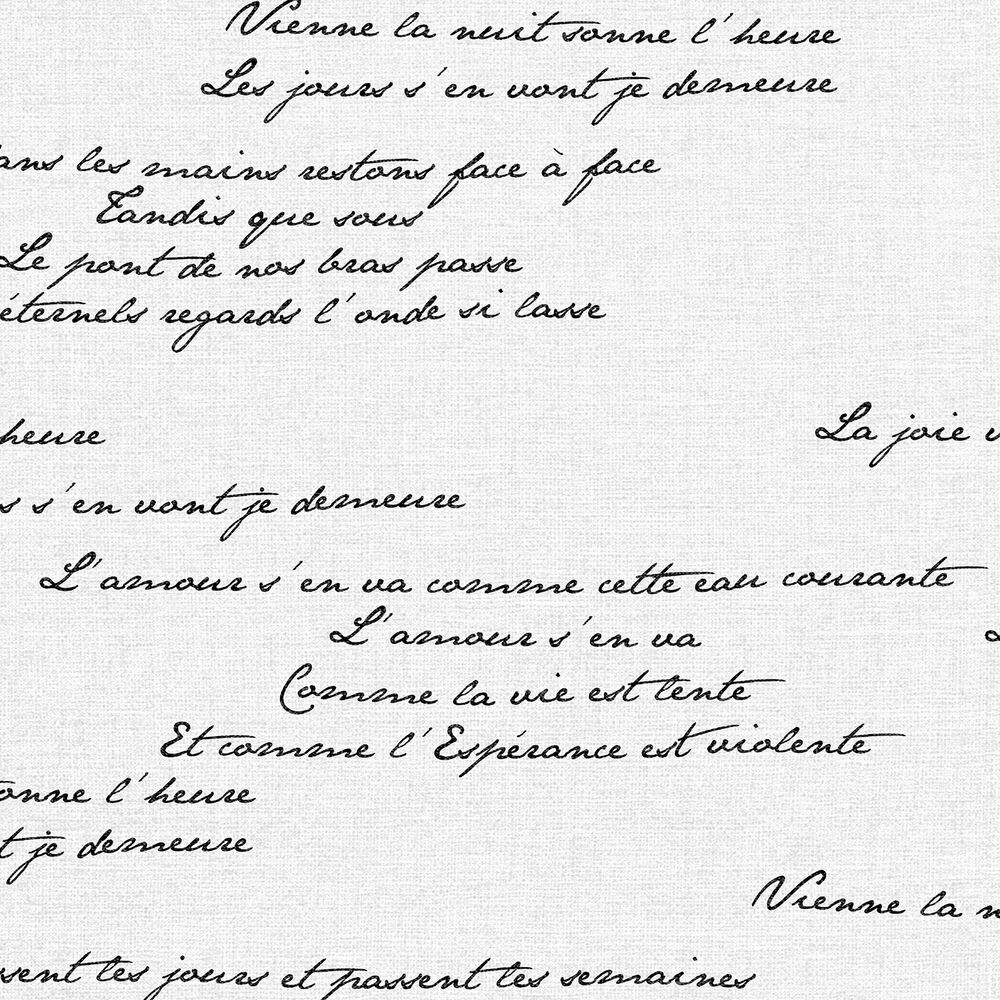 Vienne la nuit sonne l'heure
Les jours s'en vont je demeure
ans les mains restons face à face
Tandis que sous
Le pont de nos bras passe
éternels regards l'onde si lasse
heure
La joie v
s s'en vont je demeure
L'amour s'en va comme cette eau courante
L'amour s'en va
Comme la vie est lente
Et comme l'Espérance est violente
onne l'heure
t je demeure
Vienne la n
ssent les jours et passent les semaines